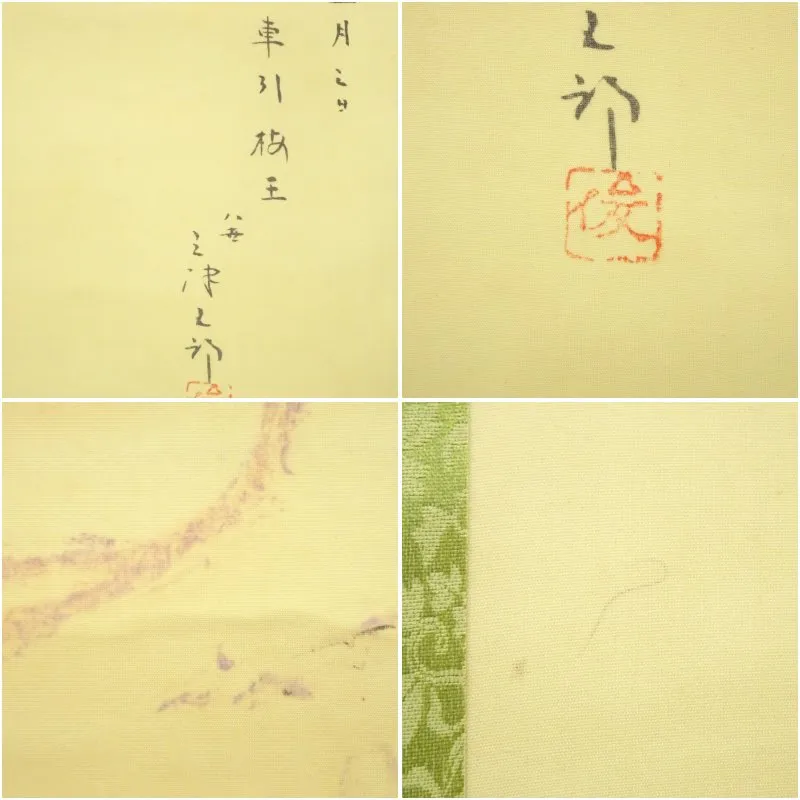 月三日
車引梅王
八世
三津五郎
五郎
俊